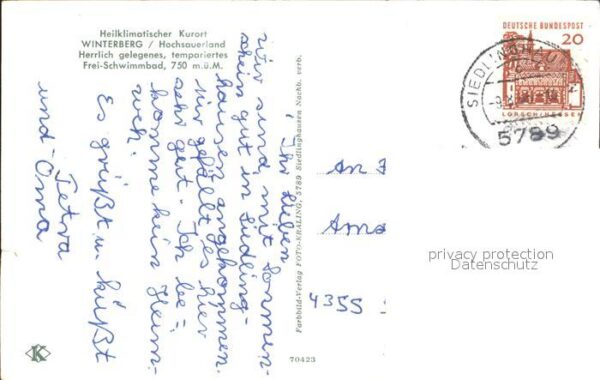 Heilklimatischer Kurort
WINTERBERG / Hochsauerland
Herrlich gelegenes, temperiertes
Frei-Schwimmbad, 750 m.ü.M.
Ihr Lieben
wir sind mit Sonnen-
schein gut in Siedling-
hausen angekommen.
mir gefällt es hier
sehr gut. Ich be=
komme kein Heim-
weh.
Es grüßt u. küßt
Petra
und Oma
Farbbild-Verlag FOTO-KRALING, 5789 Siedlinghausen Nachb. verb.
70423
K
DEUTSCHE BUNDESPOST
20
LORSCH/HESSEN
SIEDLINGHAUSEN
5789
An
4355
privacy protection
Datenschutz